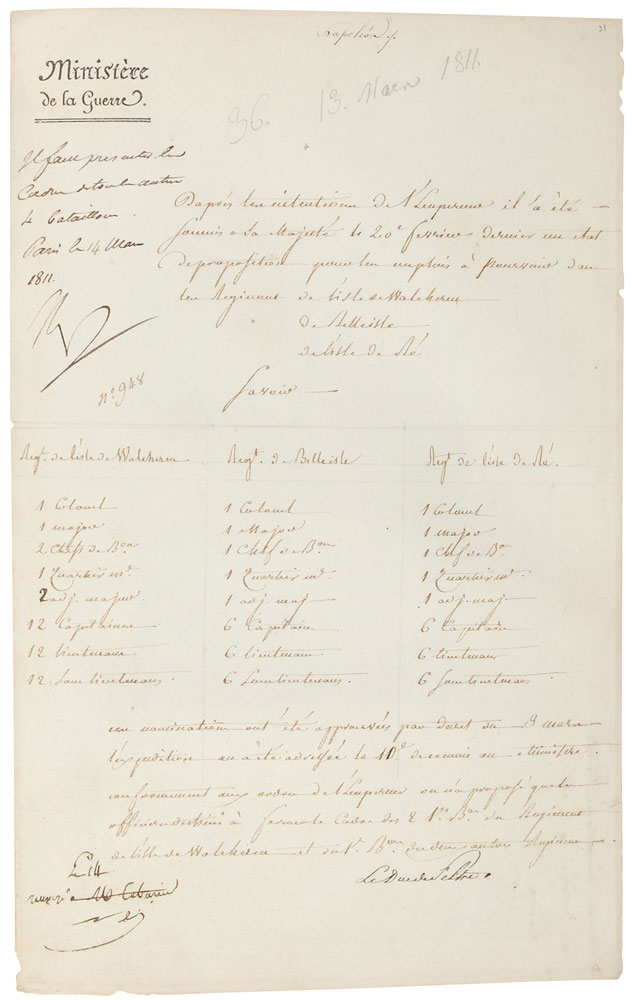 Napoléon
31
Ministère
de la Guerre.
36. 13. Mars 1811.
Il faut présenter les
Cadres de tous les autres
4 bataillons.
Paris le 14 Mars
1811.
N
n.º 948
D'après les intentions de l'Empereur il a été
soumis à Sa Majesté le 20 février dernier un état
de proposition pour les emplois à pourvoir dans
les Régimens de l'isle de Walcheren
de Belleisle
de l'isle de Ré
Savoir
Reg.t de l'isle de Walcheren
1 Colonel
1 major
2 Chefs de B.on
1 Quartier m.e
2 adj. major
12 Capitaines
12 lieutenans
12 Sous lieutenans
Reg.t de Belleisle
1 Colonel
1 Major
1 Chef de B.on
1 Quartier m.e
1 adj. maj
6 Capitaine
6 lieutenans
6 Sous lieutenans.
Reg.t de l'isle de Ré.
1 Colonel
1 major
1 Chef de B.on
1 Quartier m.e
1 adj. maj
6 Capitaine
6 lieutenans
6 Sous lieutenans
ces nominations ont été approuvées par décret du 8 mars
l'expédition en a été adressée le 10 de ce mois au Ministre.
conformément aux ordres de l'Empereur on n'a proposé que les
officiers destinés à former le Cadre des 2 1.ers B.ons du Régiment
de l'isle de Walcheren et du 1.er B.on des deux autres Régimens.
Le Duc de Feltre
14
renvoyé à M